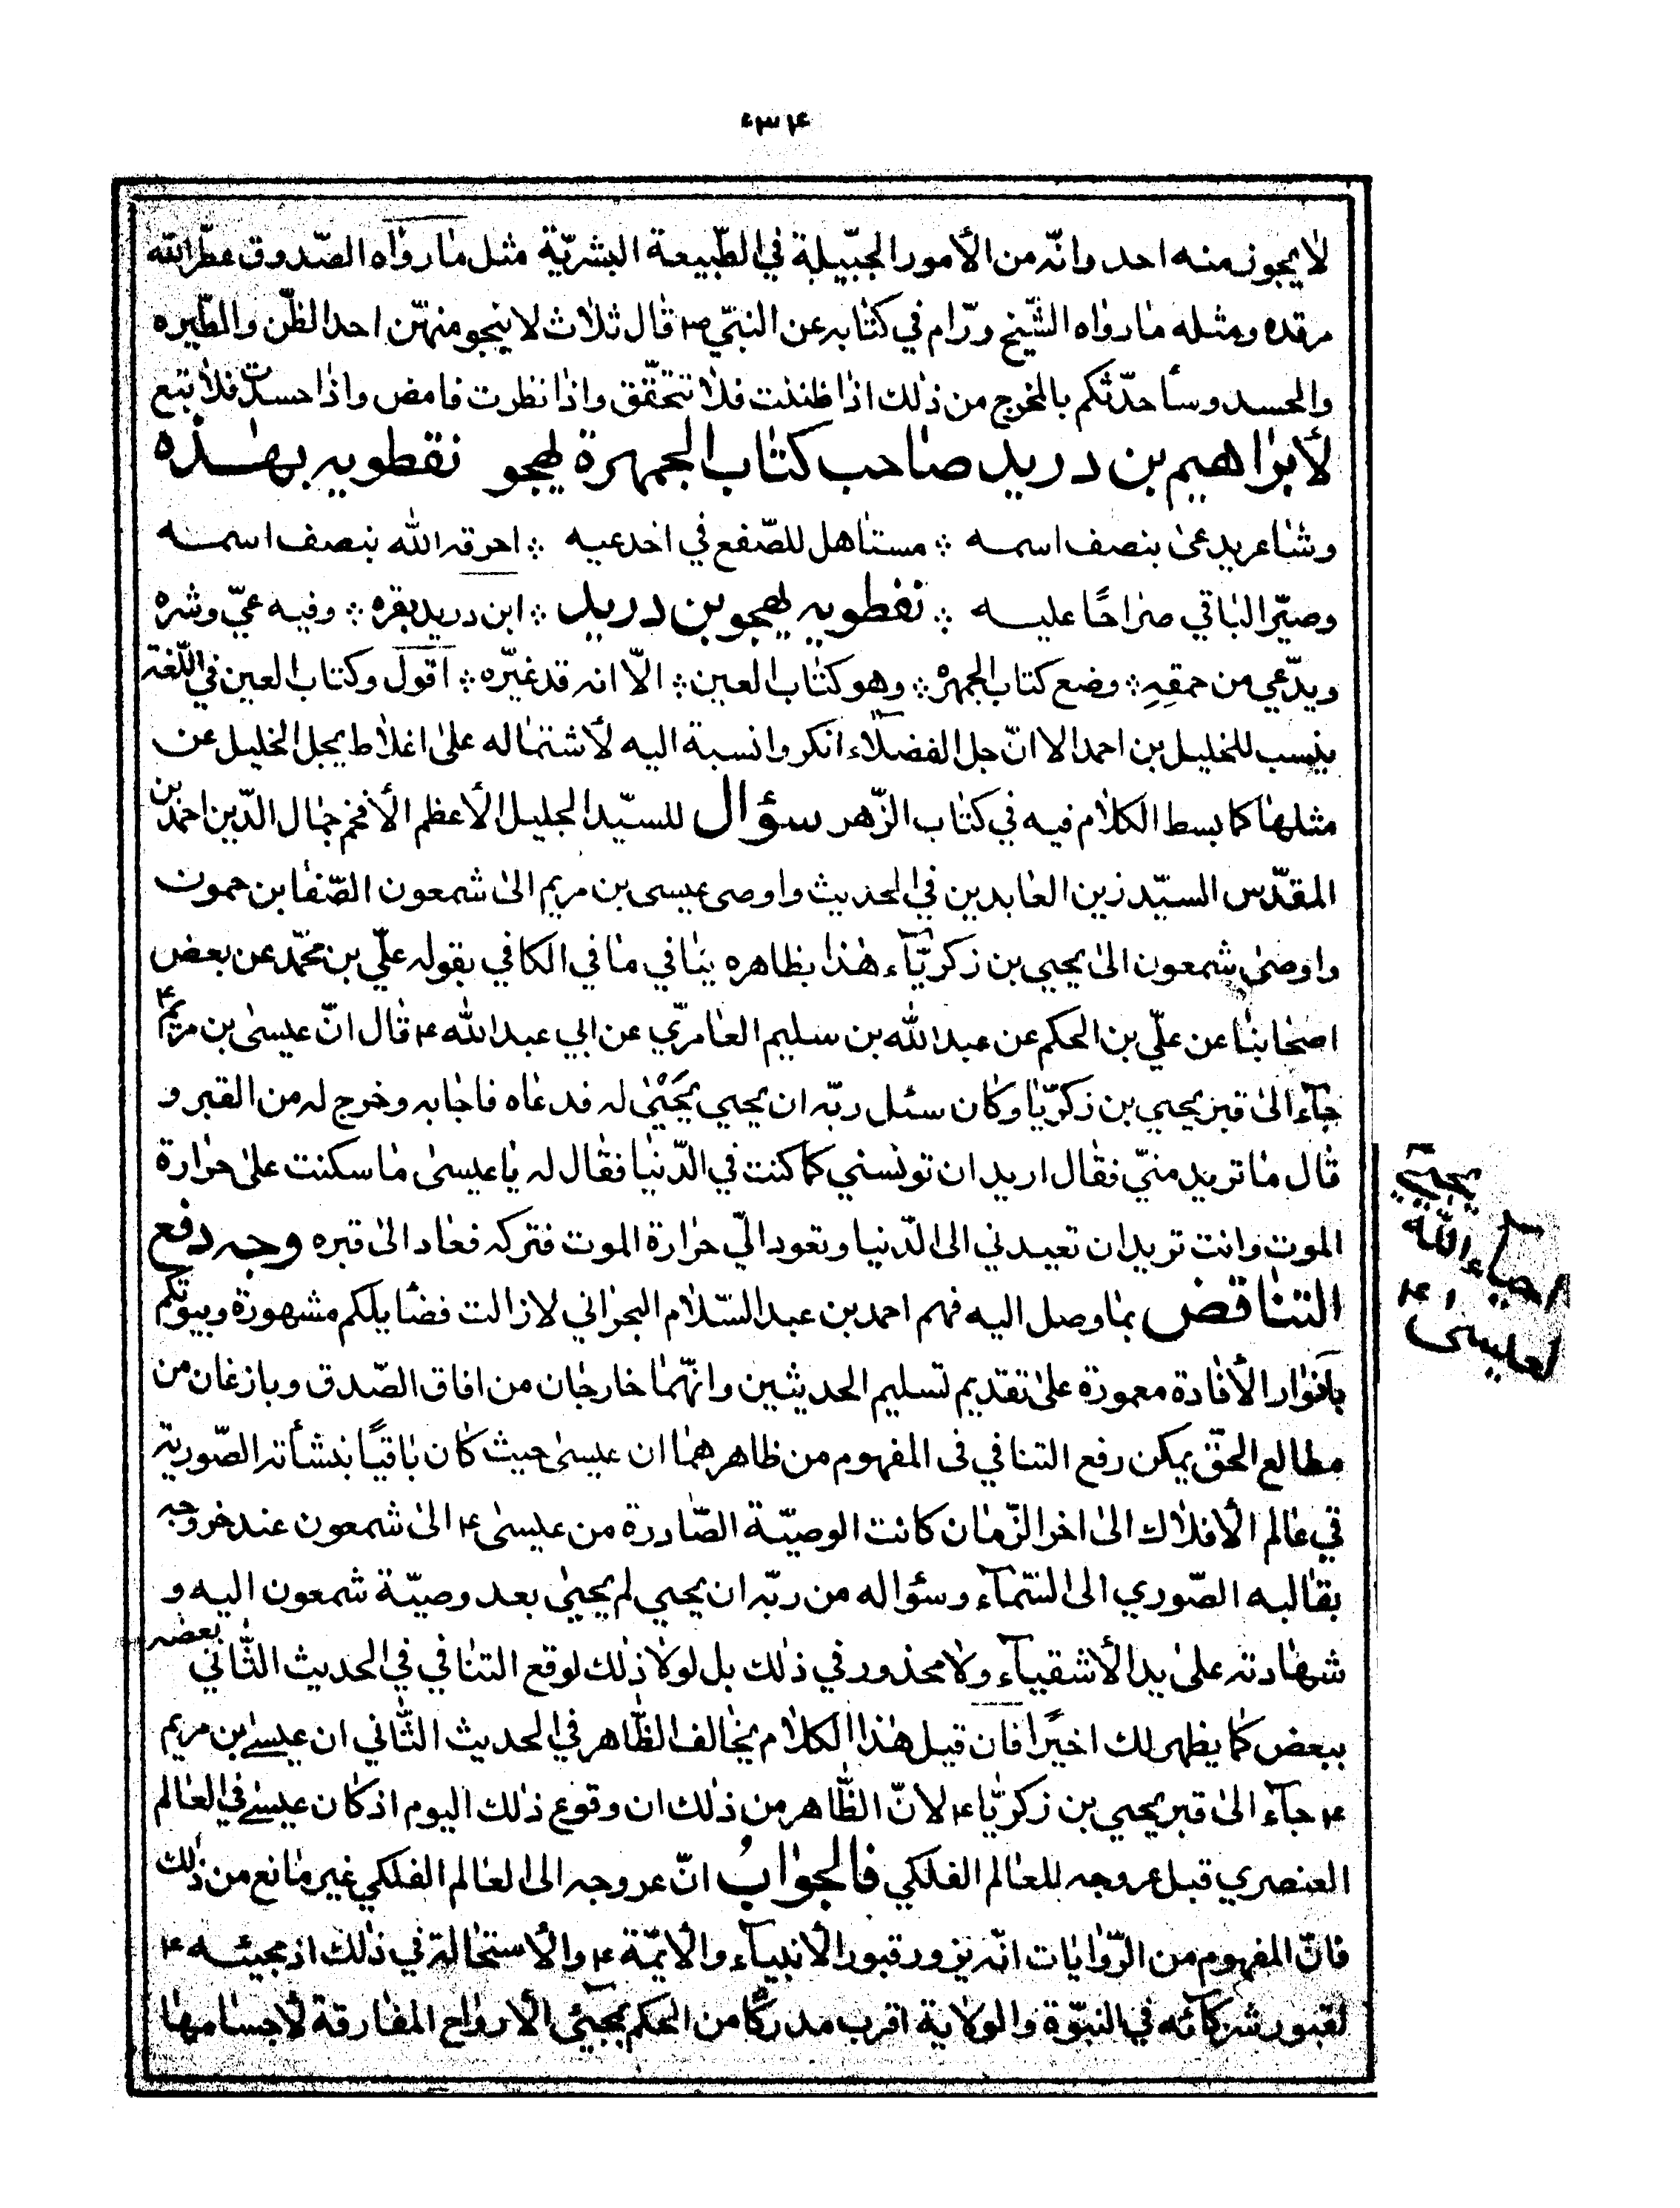 لا يجوز منه احد وانّه من الأمور الجبّيلة في الطّبيعة البشريّة مثل ما رواه الصّدوق عطّر الله
مرقده ومثله ما رواه الشّيخ ورّام في كتابه عن النبيّ ص قال ثلاث لا ينجو منهنّ احد الظنّ والطّيره
والحسد وسأحدّثكم بالمخرج من ذلك اذا ظننت فلا تتحقّق واذا نظرت فامض واذا حسدت فلا تبتع
لأبراهيم بن دريد صاحب كتاب الجمهرة يهجو نقطويه بهذه
وشاعر يدعى بنصف اسمه ؞ مستاهل للصّفع في اخدعيه ؞ احرقه الله بنصف اسمه
وصيّر الباقي صراحًا عليه ؞ نفطويه يهجو بن دريد ؞ ابن دريد بقره ؞ وفيه عيّ وشره
ويدّعي من حمقِهِ ؞ وضع كتاب الجمهره ؞ وهو كتاب العين ؞ الّا انه قد غيّره ؞ اقول وكتاب العين في اللّغة
ينسب للخليل بن احمد الا انّ جل الفضلاء انكروا نسبة اليه لأشتماله على اغلاط يجل الخليل عن
مثلها كما بسط الكلام فيه في كتاب الزّهر سؤال للسيّد الجليل الأعظم الأفخم جمال الدّين احمد بن
المقدّس السيّد زين العابدين في الحديث واوصى عيسى بن مريم الى شمعون الصّفا بن حمون
واوصى شمعون الى يحيى بن زكريّاء هذا بظاهره ينافي ما في الكافي بقوله عليّ بن محمّد عن بعض
اصحابنا عن عليّ بن الحكم عن عبد الله بن سليم العامريّ عن ابي عبد الله ع قال انّ عيسى بن مريم ع
جاء الى قبر يحيى بن زكريّا وكان سئل ربّه ان يحيى يَحْيَى له فدعاه فاجابه وخرج له من القبر و
قال ما تريد منيّ فقال اريد ان تونسني كما كنت في الدّنيا فقال له يا عيسى ما سكنت على حرارة
الموت وانت تريد ان تعيدني الى الدّنيا وتعود اليّ حرارة الموت فتركه فعاد الى قبره وجه دفع
التناقض بما وصل اليه فهم احمد بن عبد السّلام البحراني لا زالت فضايلكم مشهورة وبيوتكم
بانوار الأفادة معمورة على تقديم تسليم الحديثين وانّهما خارجان من افاق الصّدق وبازغان من
مطالع الحقّ يمكن رفع التنافي فى المفهوم من ظاهرهما ان عيسى حيث كان باقيًا بنشأته الصّورية
في عالم الأفلاك الى اخر الزّمان كانت الوصيّة الصّادرة من عيسى ع الى شمعون عند خروجه
بقالبه الصّوري الى السّماء وسؤاله من ربّه ان يحيى لم يحيى بعد وصيّة شمعون اليه و
شهادته على يد الأشقياء ولا محذور في ذلك بل لولا ذلك لوقع التنافي في الحديث الثّاني بعضه
ببعض كما يظهر لك اخيرًا فان قيل هذا الكلام يخالف الظّاهر في الحديث الثّاني ان عيسى بن مريم
ع جاء الى قبر يحيى بن زكريّا ع لانّ الظّاهر من ذلك ان وقوع ذلك اليوم اذ كان عيسى في العالم
العنصري قبل عروجه للعالم الفلكي فالجوابُ انّ عروجه الى العالم الفلكي غير مانع من ذلك
فانّ المفهوم من الرّوايات انّه يزور قبور الأنبياء والأيمّة ع والأستحالة في ذلك اذ مجيئه ع
لقبور شركائه في النبوّة والولاية اقرب مدركًا من الحكم بمجيئ الأرواح المفارقة لأجسامها
يحيى
احياء الله
لعيسى ع